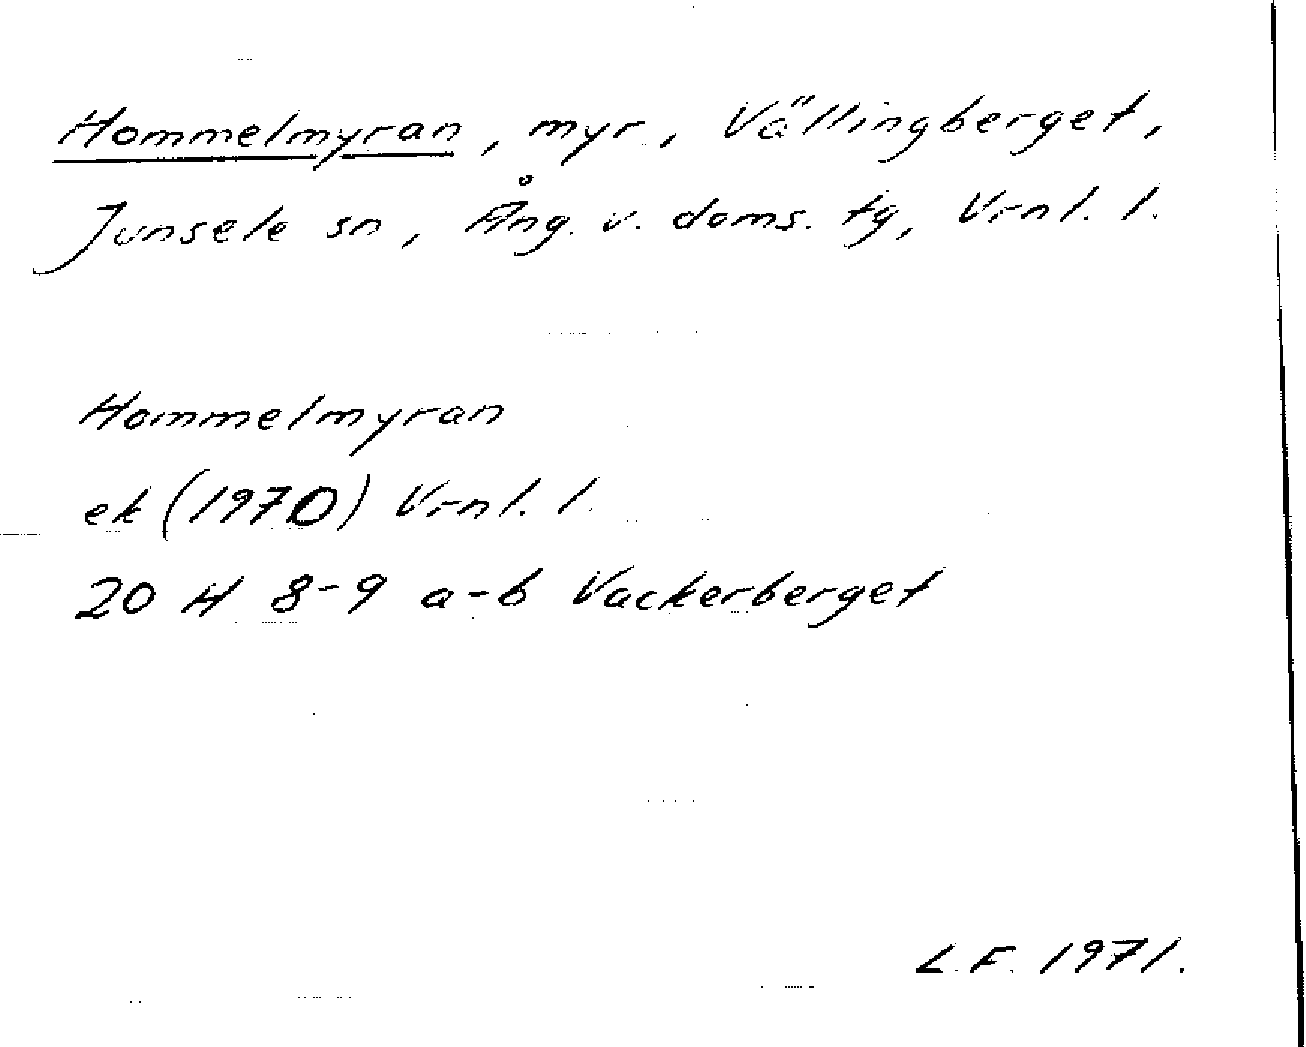 Hommelmyran, myr, Vällingberget,
Junsele sn, Ång. v. doms. tg, Vrnl. l.
Hommelmyran
ek (1970) Vrnl. l.
20 H 8-9 a-b Vackerberget
L.F. 1971.